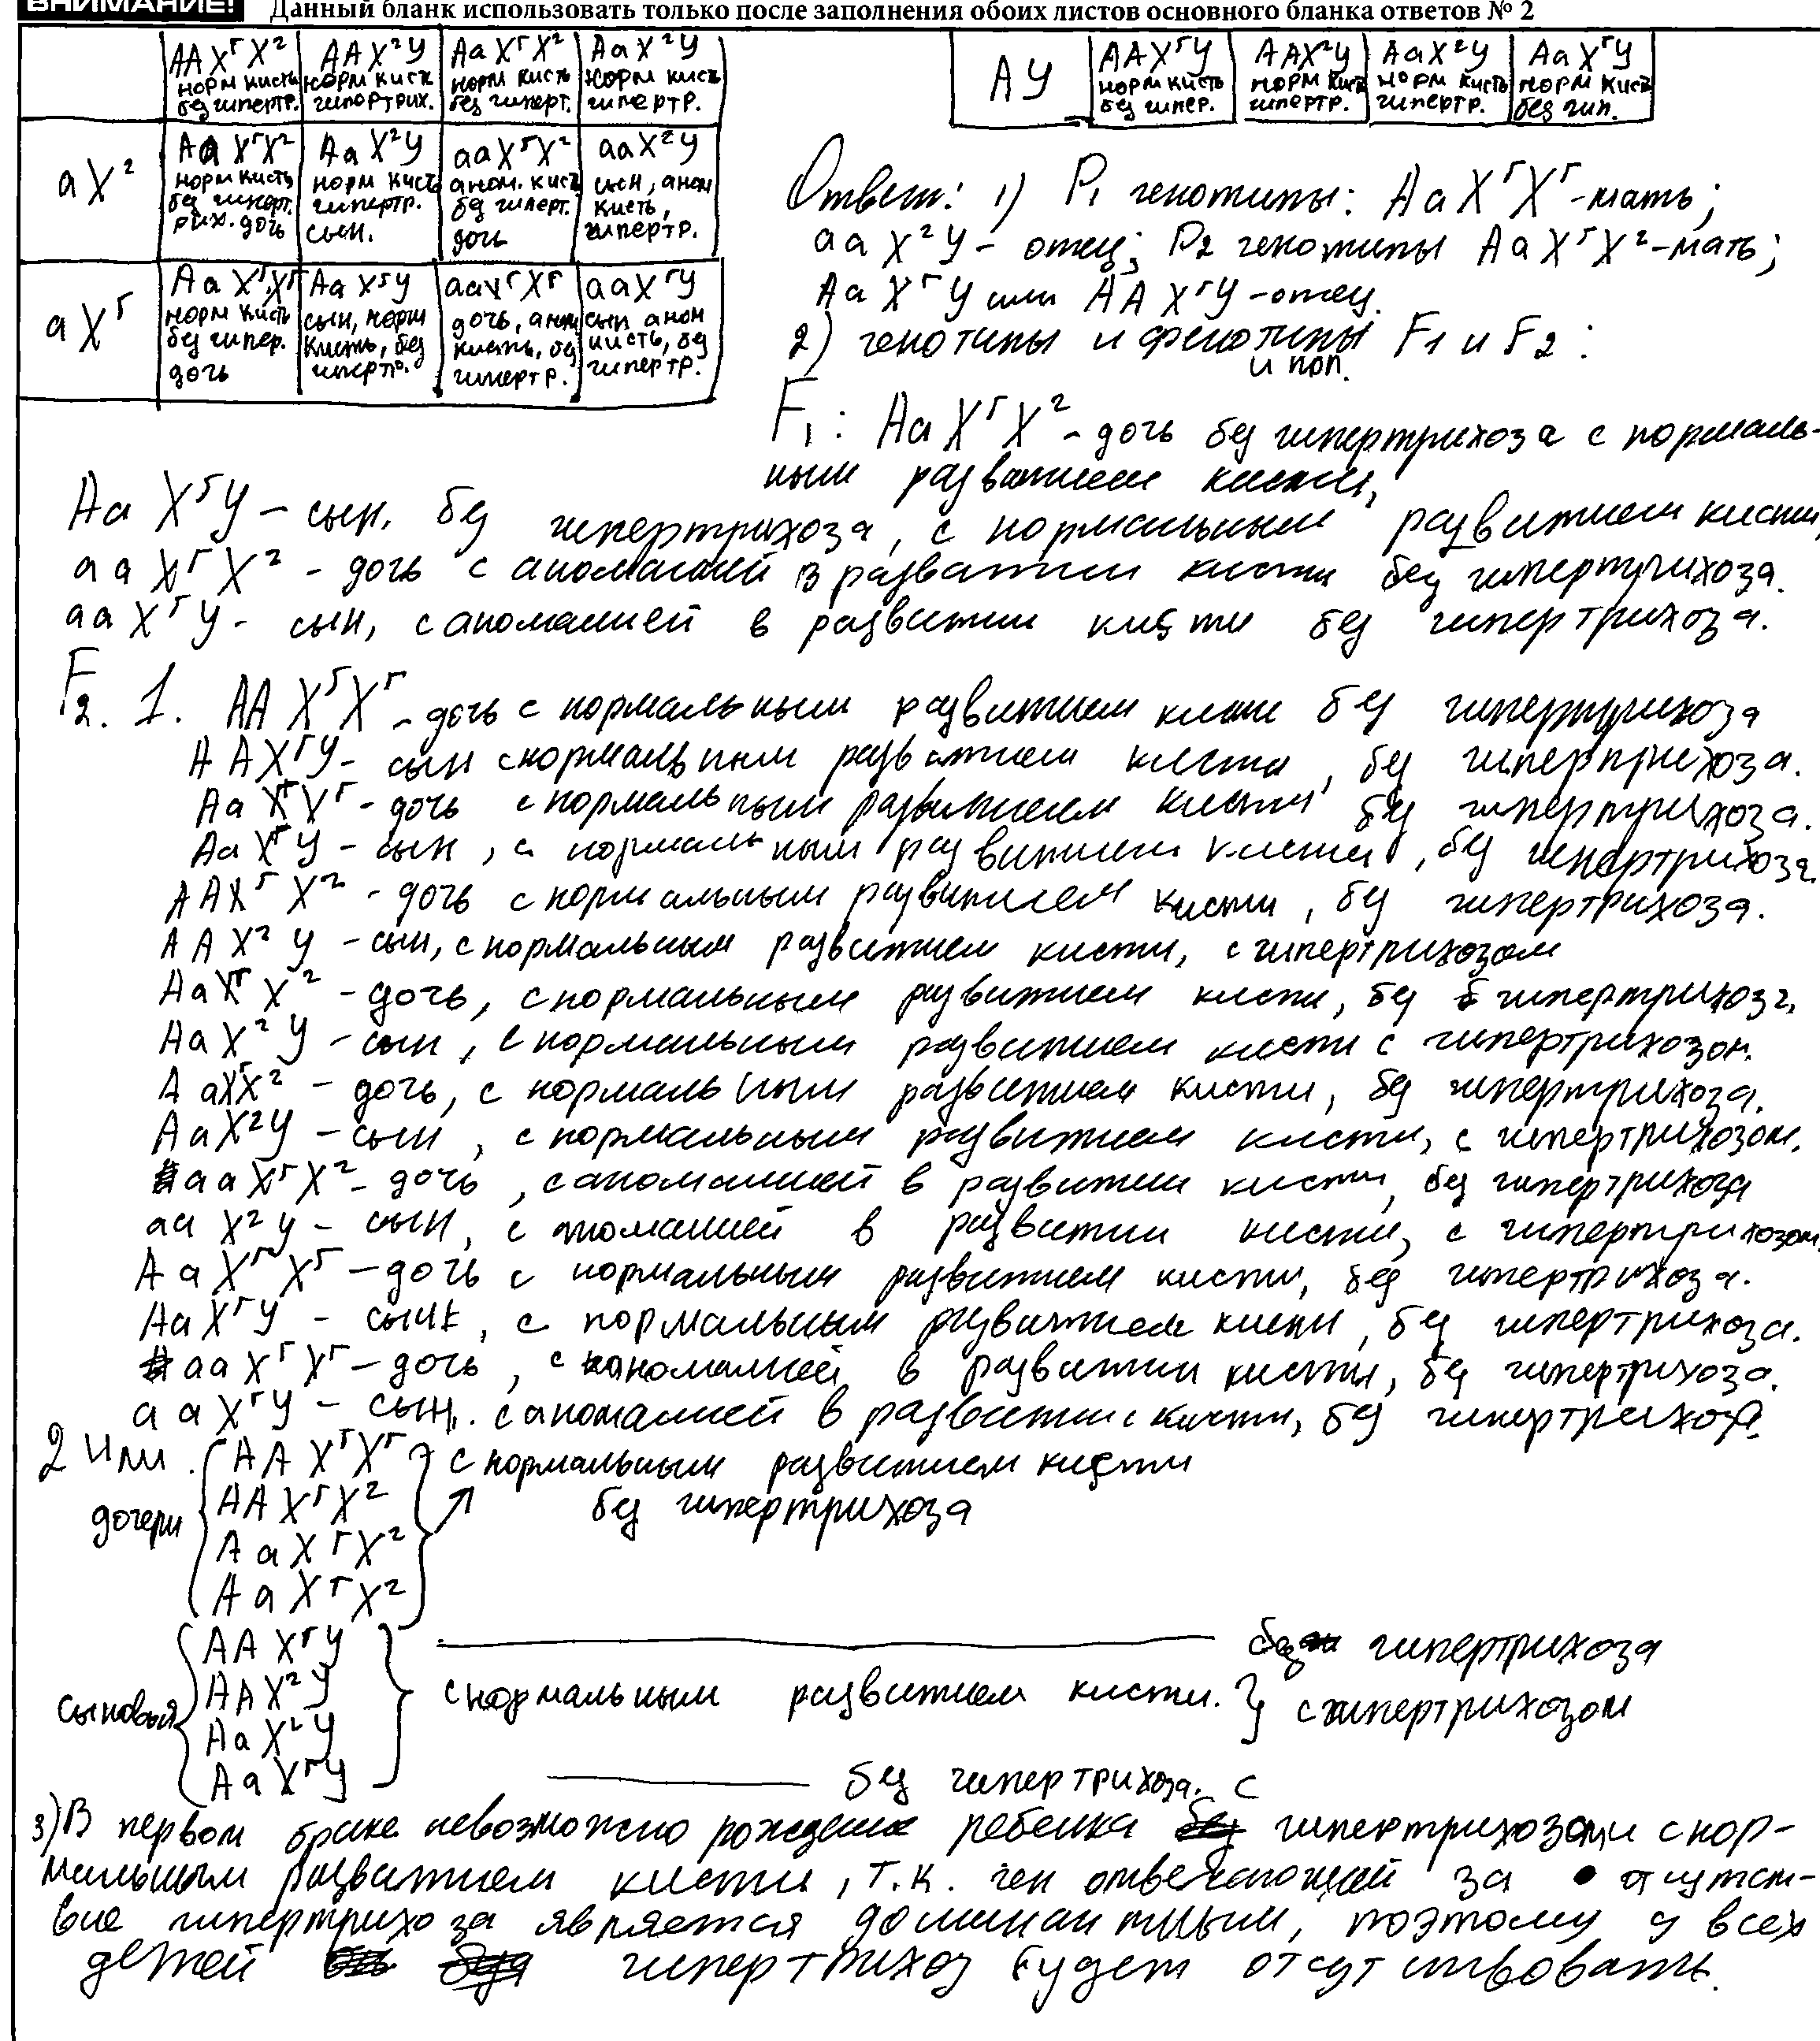 ВНИМАНИЕ! Данный бланк использовать только после заполнения обоих листов основного бланка ответов № 2
AA XᴦX² норм кисть без гипертр. | AA X²У норм кисть гипертрих. | Aa XᴦX² норм кисть без гиперт. | Aa X²У норм кисть гипертр.
aX² | Aa XᴦX² норм кисть без гиперт. рих. дочь | Aa X²У норм кисть гипертр. сын. | aa XᴦX² аном. кисть без гиперт. дочь | aa X²У сын, аном кисть, гипертр.
aXᴦ | Aa XᴦXᴦ норм кисть без гипер. дочь | Aa XᴦУ сын, норм кисть, без гипертр. | aa XᴦXᴦ дочь, аном кисть, без гипертр. | aa XᴦУ сын аном кисть, без гипертр.
АУ | AA XᴦУ норм кисть без гипер. | AA X²У норм кисть гипертр. | Aa X²У норм кисть гипертр. | Aa XᴦУ норм кисть без гип.
Ответ: 1) P₁ генотипы: Aa XᴦXᴦ - мать;
aa X²У - отец; P₂ генотипы Aa XᴦX² - мать;
Aa XᴦУ или AA XᴦУ - отец.
2) генотипы и фенотипы F₁ и F₂ :
и пол.
F₁: Aa XᴦX² - дочь без гипертрихоза с нормаль-
ным развитием кисти,
Aa XᴦУ - сын, без гипертрихоза, с нормальным развитием кисти,
aa XᴦX² - дочь с аномалией в развитии кисти без гипертрихоза.
aa XᴦУ - сын, с аномалией в развитии кисти без гипертрихоза.
F₂. 1. AA XᴦXᴦ - дочь с нормальным развитием кисти без гипертрихоза
AA XᴦУ - сын с нормальным развитием кисти, без гипертрихоза.
Aa XᴦXᴦ - дочь с нормальным развитием кисти без гипертрихоза.
Aa XᴦУ - сын, с нормальным развитием кисти, без гипертрихоза
AA XᴦX² - дочь с нормальным развитием кисти, без гипертрихоза.
AA X²У - сын, с нормальным развитием кисти, с гипертрихозом
Aa XᴦX² - дочь, с нормальным развитием кисти, без гипертрихоза.
Aa X²У - сын, с нормальным развитием кисти с гипертрихозом.
Aa XᴦX² - дочь, с нормальным развитием кисти, без гипертрихоза.
Aa X²У - сын, с нормальным развитием кисти, с гипертрихозом.
aa XᴦX² - дочь, с аномалией в развитии кисти, без гипертрихоза
aa X²У - сын, с аномалией в развитии кисти, с гипертрихозом.
Aa XᴦXᴦ - дочь с нормальным развитием кисти, без гипертрихоза.
Aa XᴦУ - сын, с нормальным развитием кисти, без гипертрихоза.
aa XᴦXᴦ - дочь, с аномалией в развитии кисти, без гипертрихоза.
aa XᴦУ - сын, с аномалией в развитии кисти, без гипертрихоза.
2 или. AA XᴦXᴦ с нормальным развитием кисти
AA XᴦX² без гипертрихоза
дочери
Aa XᴦX²
Aa XᴦX²
AA XᴦУ без гипертрихоза
сыновья AA X²У с нормальным развитием кисти. } с гипертрихозом
Aa X²У
Aa XᴦУ без гипертрихоза. с
3) В первом браке невозможно рождение ребенка гипертрихозом и с нор-
мальным развитием кисти, т.к. ген отвечающий за отсутст-
вие гипертрихоза является доминантным, поэтому у всех
детей гипертрихоз будет отсутствовать.